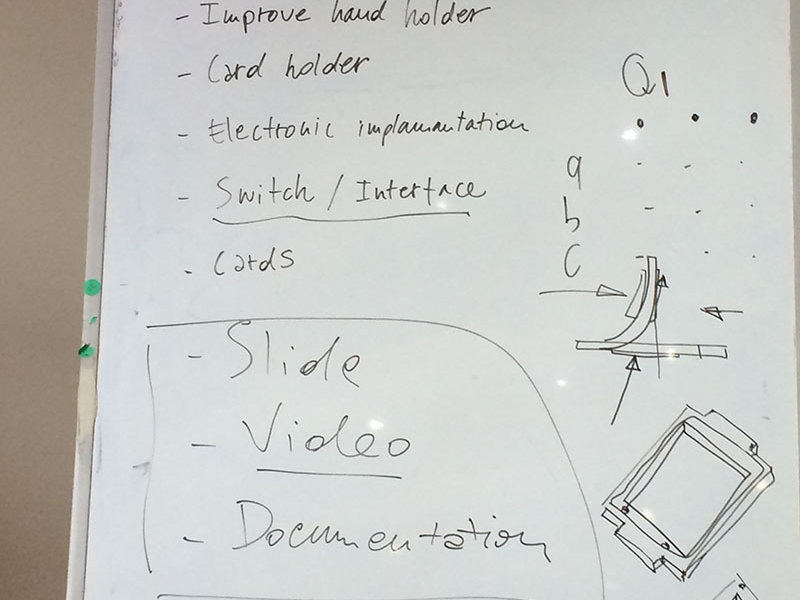 - Improve hand holder
- Card holder
- Electronic implamantation
- Switch / Interface
- Cards
- Slide
- Video
- Documentation
Q1
a
b
c